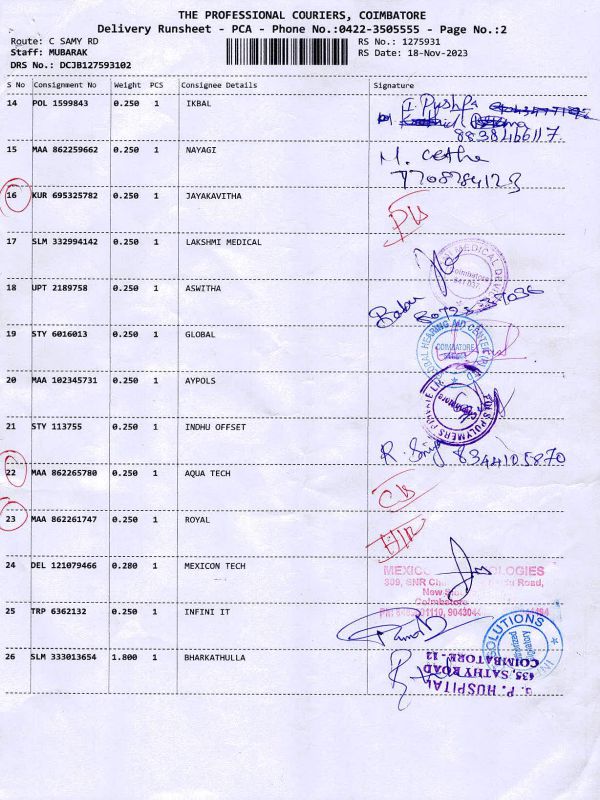 THE PROFESSIONAL COURIERS, COIMBATORE
Delivery Runsheet - PCA - Phone No.:0422-3505555 - Page No.:2
Route: C SAMY RD
RS No.: 1275931
Staff: MUBARAK
RS Date: 18-Nov-2023
DRS No.: DCJB127593102
S No Consignment No Weight PCS Consignee Details Signature
14 POL 1599843 0.250 1 IKBAL I. Pushpa
8838466117
15 MAA 862259662 0.250 1 NAYAGI M.
7708784123
16 KUR 695325782 0.250 1 JAYAKAVITHA
17 SLM 332994142 0.250 1 LAKSHMI MEDICAL
MEDICAL
Coimbatore
641 037
18 UPT 2189758 0.250 1 ASWITHA Babu
19 STY 6016013 0.250 1 GLOBAL
HEARING AID CENTRE
COIMBATORE
20 MAA 102345731 0.250 1 AYPOLS
POLYMERS PRIVATE
21 STY 113755 0.250 1 INDHU OFFSET R.
8344105870
22 MAA 862265780 0.250 1 AQUA TECH
23 MAA 862261747 0.250 1 ROYAL
24 DEL 121079466 0.280 1 MEXICON TECH
309, SNR
Road,
Coimbatore
25 TRP 6362132 0.250 1 INFINI IT
SOLUTIONS
26 SLM 333013654 1.800 1 BHARKATHULLA
P. HOSPITAL
635, SATHY ROAD
COIMBATORE - 12